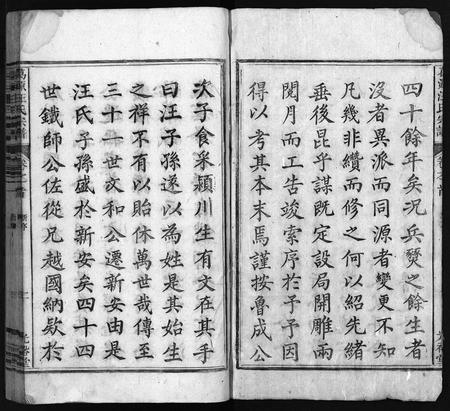 四十餘年矣況兵燹之餘生者
沒者異派而同源者變更不知
凡幾非續而修之何以紹先緒
垂後昆乎謀既定設局開雕兩
閱月而工告竣索序於予予因
得以考其本末焉謹按魯成公
次子食采潁川生有文在其手
曰汪子孫遂以為姓是其始生
之祥不有以貽休萬世哉傳至
三十一世文和公遷新安由是
汪氏子孫盛於新安矣四十四
世鐵師公佐從兄越國納欵於